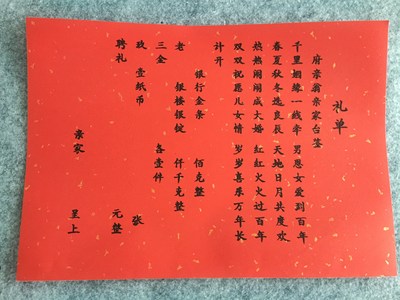 礼单
府亲翁亲家台鉴
千里姻缘一线牵 男恩女爱到百年
春夏秋冬选良辰 天地日月共度欢
热热闹闹成大婚 红红火火过百年
双双祝愿儿女情 岁岁喜乐万年长
计开
银行金条 佰克整
老 银楼银锭 仟千克整
三金 各壹件
玖 壹纸币 张
聘礼 元整
亲家 呈上